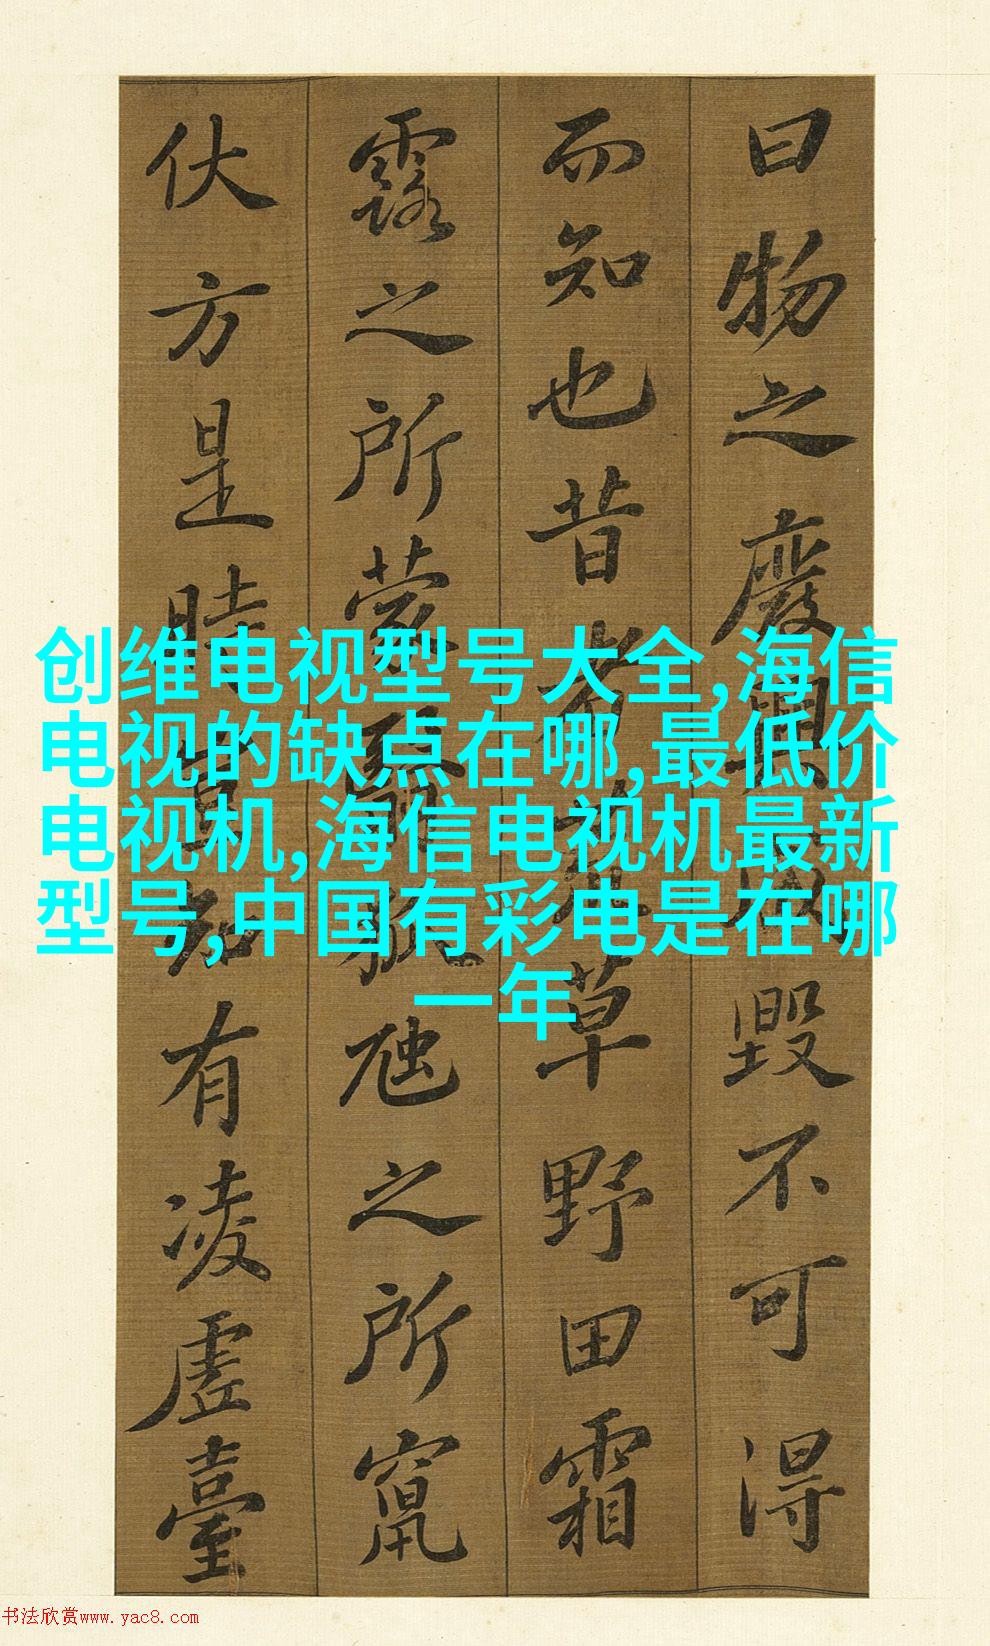 曰物之廢興成毀不可得
而知也昔者荒草野田霜
露之所蒙翳狐虺之所竄
伏方是時豈知有凌虛臺
创维电视型号大全,海信
电视的缺点在哪,最低价
电视机,海信电视机最新
型号,中国有彩电是在哪
一年
书法欣赏www.yac8.com